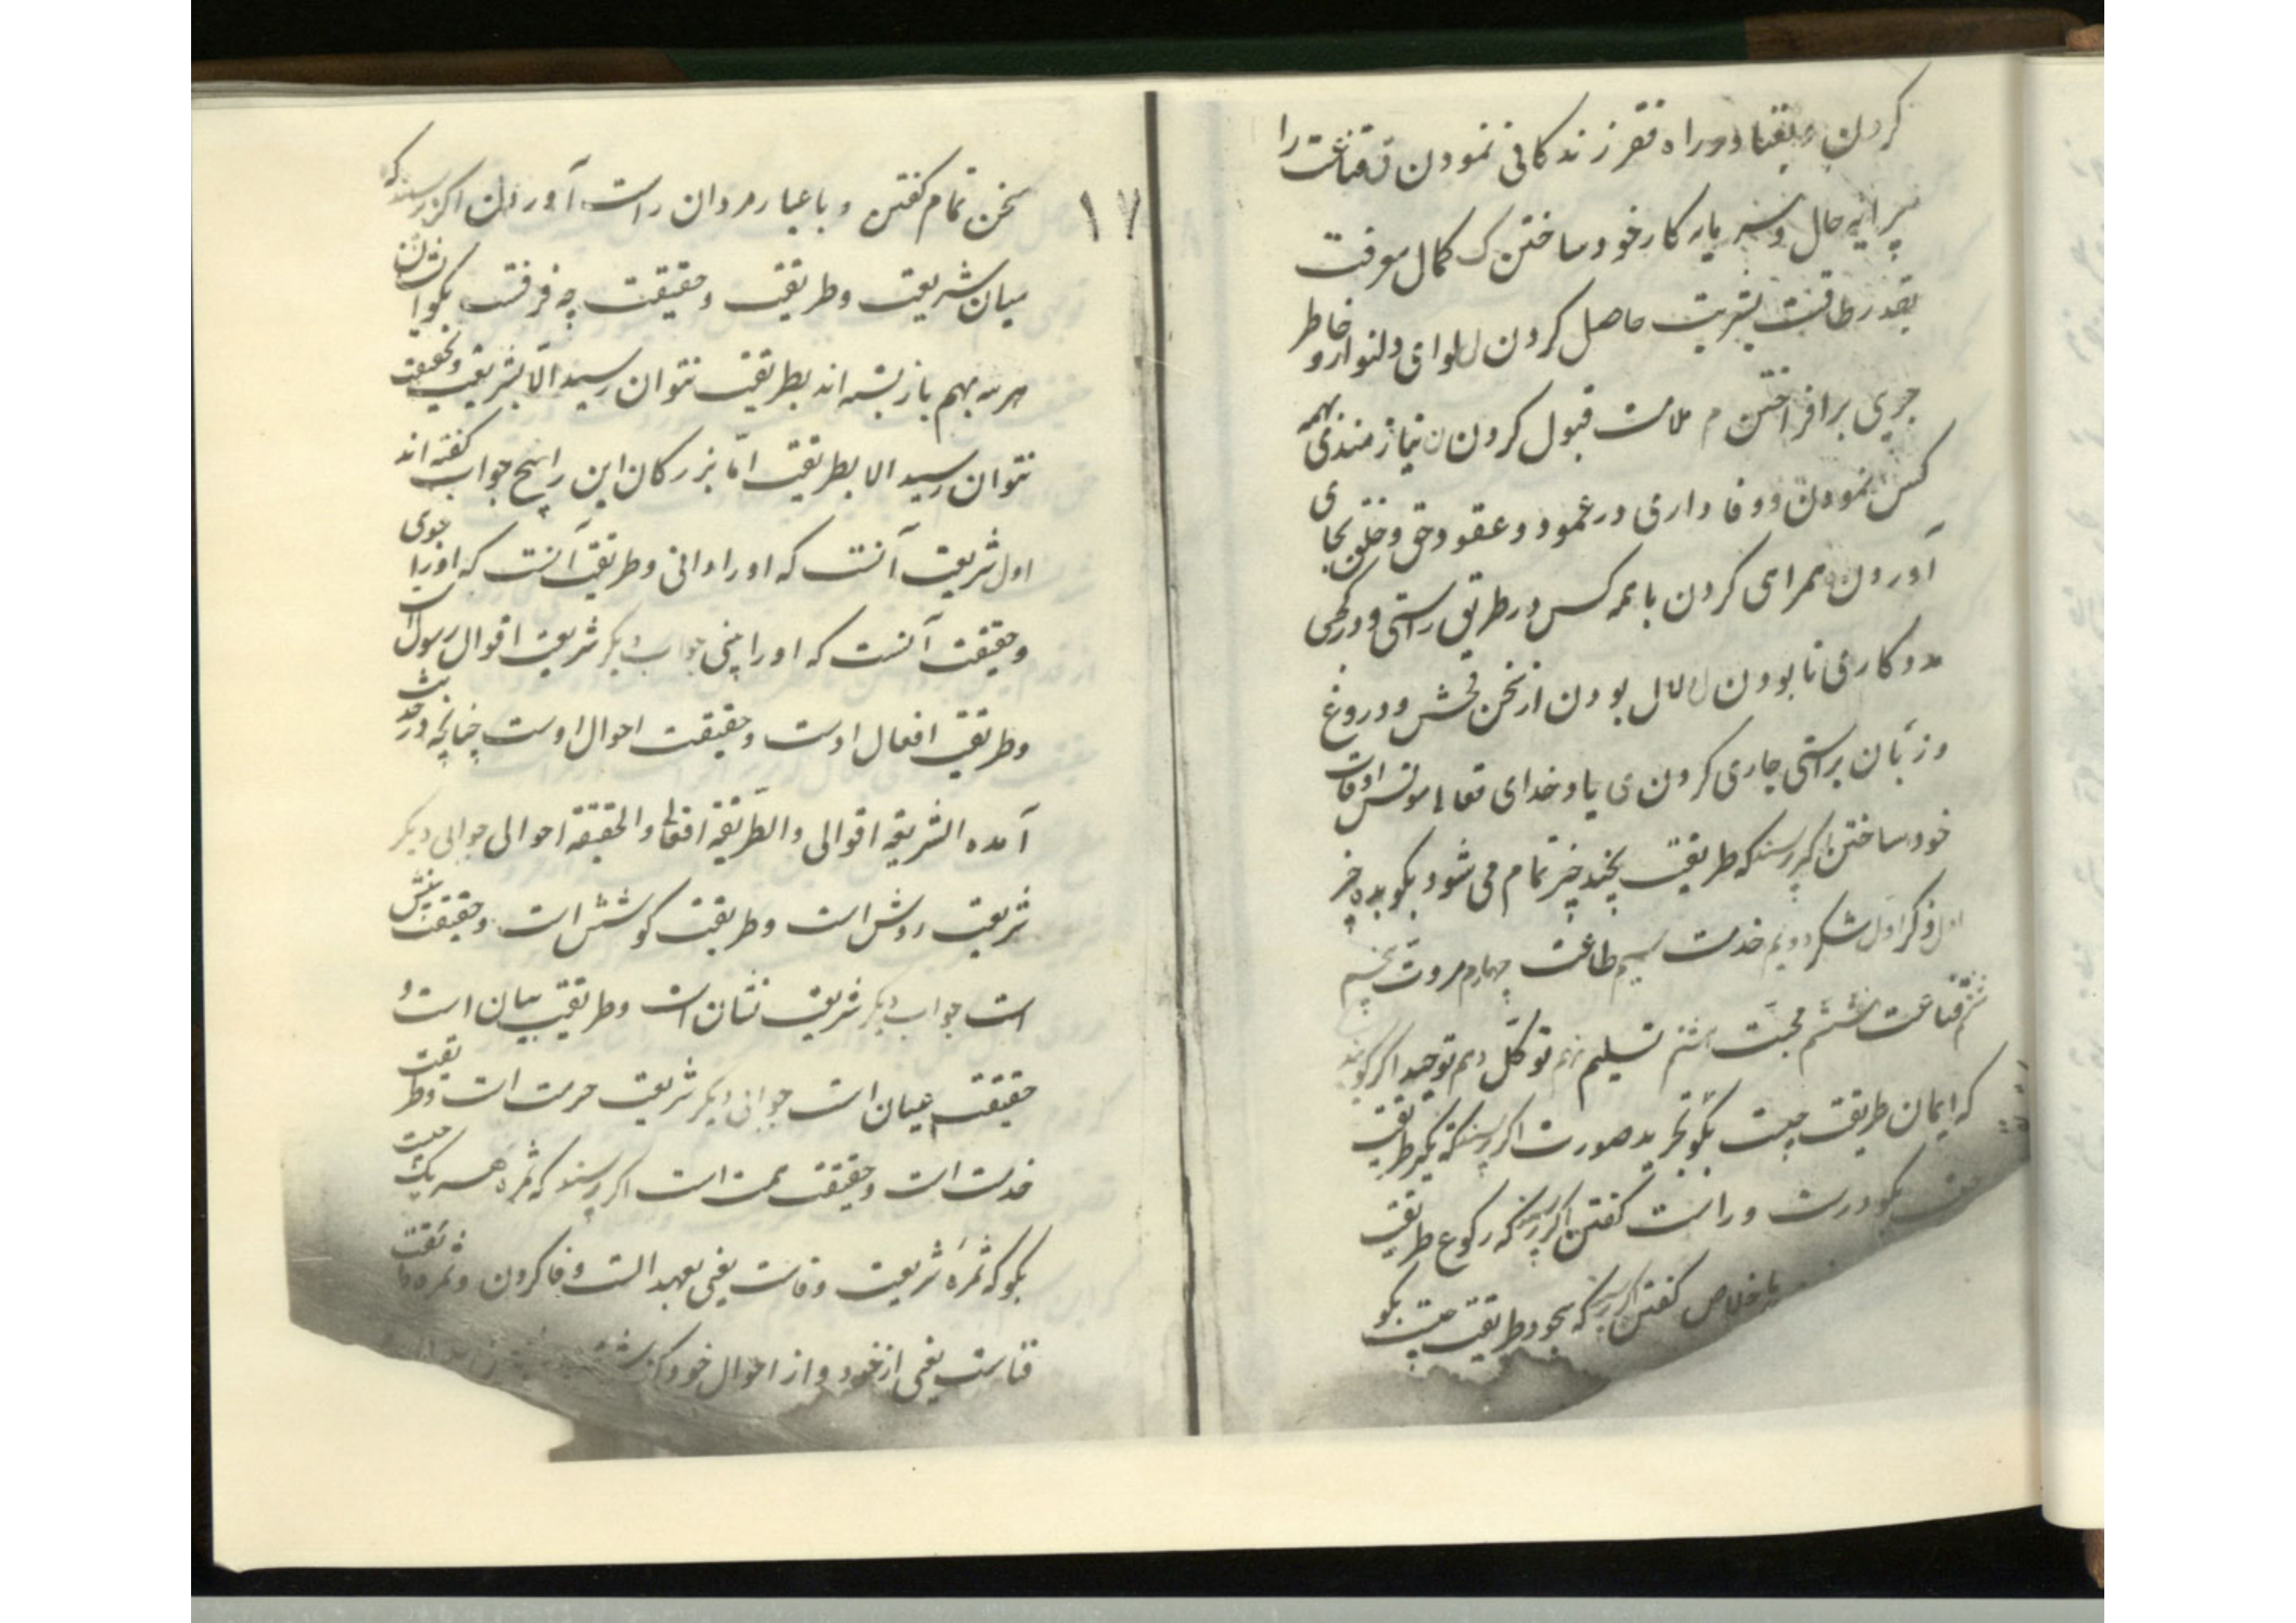 کردن و بفنا در راه فقر زندگانی نمودن ق قناعت را
پیرایه حال و سرمایه کار خود ساختن ک کمال معرفت
بقدر طاقت بشریت حاصل کردن ل لوای دلنوازی و خاطر
جویی برافراختن م ملامت قبول کردن ن نیازمندی بهمه
کس نمودن و وفاداری در عهود و عقود حق و خلق بجای
آوردن ه همراهی کردن با همه کس در طریق راستی و در کجی
مددکاری نابودن لا لال بودن از سخن فحش و دروغ
و زبان براستی جاری کردن ی یاد خدای تعالی مونس اوقات
خود ساختن اگر پرسند که طریقت بچند چیز تمام می شود بگو بده چیز
اول ذکر اول شکر دویم خدمت سیم طاعت چهارم مروت پنجم
قناعت ششم محبت هشتم تسلیم نهم توکل دهم توحید اگر گویند
که ایمان طریقت چیست بگو تجرید صورت اگر پرسند که تکبیر طریقت
بگو درست و راست گفتن اگر پرسند که رکوع طریقت
باخلاص گفتن اگر پرسند که سجود طریقت چیست بگو
۱۷
سخن تمام گفتن و با عیار مردان راست آوردن اگر پرسند که
میان شریعت و طریقت و حقیقت چه فرقست بگو
هر سه بهم بازبسته اند بطریقت نتوان رسید الّا بشریعت و بحقیقت
نتوان رسید الا بطریقت امّا بزرگان این را پنج جواب گفته اند
اول شریعت آنست که او را دانی و طریقت آنست که او را جوی
و حقیقت آنست که او را بینی جواب دیگر شریعت اقوال رسول است
و طریقت افعال اوست و حقیقت احوال اوست چنانچه در حدیث
آمده الشریعة اقوالی و الطریقة افعالی و الحقیقة احوالی جوابی دیگر
شریعت روش است و طریقت کوشش است و حقیقت بینش
است جواب دیگر شریعت نشان است و طریقت بیان است و
حقیقت عیان است جوابی دیگر شریعت حرمت است و طریقت
خدمت است و حقیقت همت است اگر پرسند که ثمره هر یک چیست
بگو که ثمره شریعت وفاست یعنی بعهد الست وفا کردن و ثمره طریقت
فناست یعنی از خود و از احوال خود